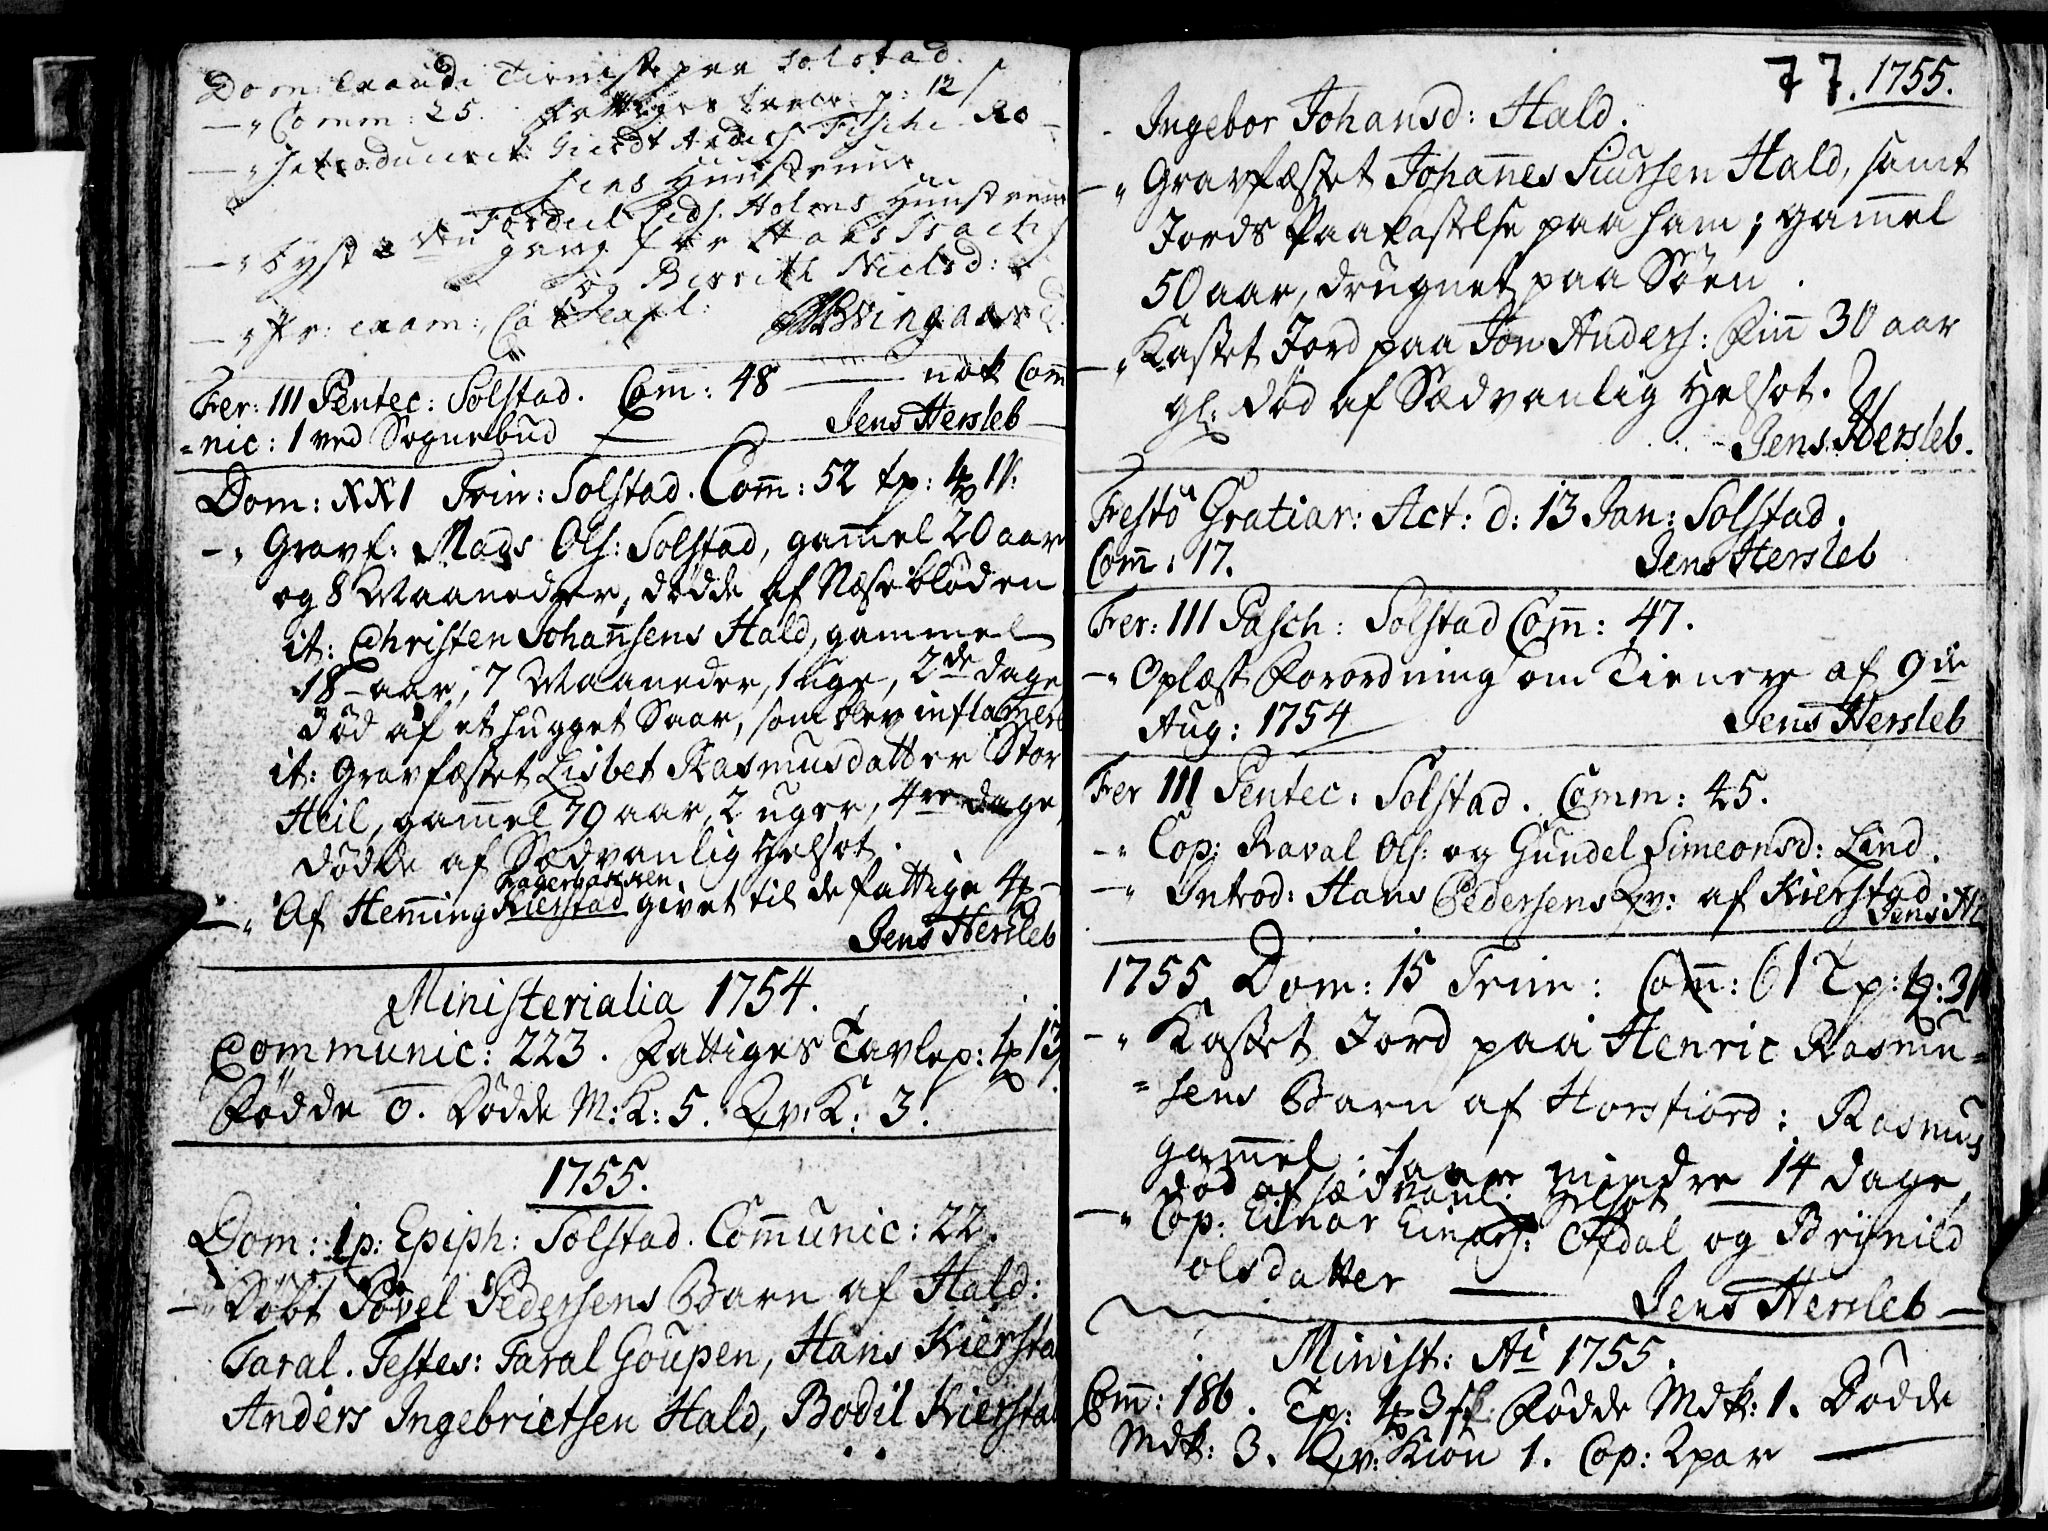 Dom: Exaudi Tieniste paa Solstad.
—" Comm: 25. Fattiges p: 12 ſ
—" Introduceret: Giertrud Anders Fische Ro
sens Hustrue
Tordiel Lids. Holms Hustrue
—" Lyst 2den gang for Hans Isachs
og Berrith Nielsd:
—" pr: exam:, Cathechl: Wingaard.
Fer: III Pentec: Solstad. Com̄: 48 — nok Com̄
=nic: 1 ved Sognebud — Jens Hersleb —
Dom: XXI Trin: Solstad. Com̄: 52 tp: 1ſ:
—" Gravf: Mads Ols: Solstad, gam̄el 20 aar
og 8 Maaneder, døde af Næse bløden
it: Christen Johan̄sens Hald, gammel
18 aar, 7 Maaneder, 1 uge, 2de dage
død af et hugget Saar, som blev inflamert
it: Gravfæstet Lisbet Rasmusdatter Stor
Heil, gam̄el 79 aar, 2 uger, 4re dage,
døde af Sædvanlig Helsot.
—" Af Hem̄ing Kierstad givet til de fattige
Jens Hersleb
Ministerialia 1754.
Communic: 223. Fattiges Tavlep: 13
Fødde 0. Dødde M:K: 5. Qv:K: 3.
1755.
Dom: 1 p: Epiph: Solstad. Com̄unic: 22.
—" Døbt Povel Pedersens Barn af Hald:
Taral. Testes: Taral Goupen, Hans Kiersta
Anders Ingebrictsen Hald, Bodil Kiersta
77. 1755.
Ingebor Johansd: Hald.
—" Gravfæstet Johan̄es Siursen Hald, samt
Jords Paakastelse paa ham; gam̄el
50 aar, drugnet paa Søen.
—" Kastet Jord paa Jon Anders: Fin̄ 30 aar
gl: død af Sædvanlig Helsot.
Jens Hersleb.
Festo Gratiar: Act: d: 13 Jan: Solstad.
Com̄: 17. Jens Hersleb
Fer: III Pasch: Solstad Com̄: 47.
—" Oplæst Forordning om Tienere af 9de
Aug: 1754 Jens Hersleb
Fer III Pentec: Solstad. Comm: 45.
—" Cop: Raval Ols: og Gundel Simeonsd: Lind.
—" Introd: Hans Pedersens Qv: af Kierstad. Jens H
1755 Dom: 15 Trin: Com̄: 61 Tp: 3ſ
—" Kastet Jord paa Henric Rasmu=
=sens Barn af Horsfiord: Rasmus
gam̄el: 1 aar mindre 14 dage,
død af sædvanl: Helsot
—" Cop: Einar Einars: Opdal og Brijnild
olsdatter — Jens Hersleb —
Minist: Ai 1755.
Com̄: 186. Tp: 3 ſ. Fødde Mdk: 1. Dødde
Mdk: 3. Qv:Kiøn 1. Cop: 2 par —